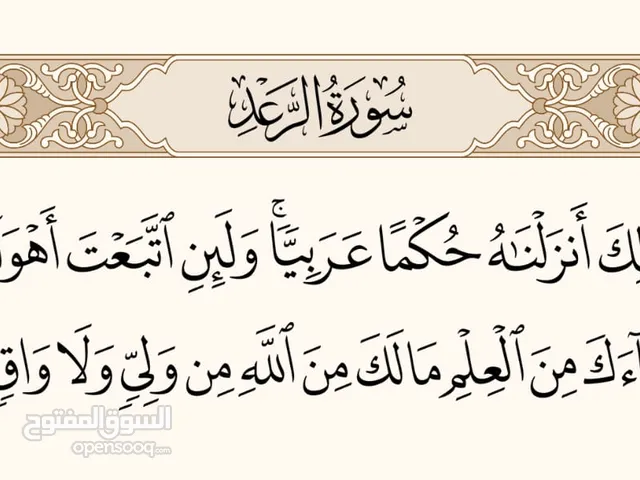 سُورَةُ الرَّعْدِ
لِكَ أَنزَلْنَٰهُ حُكْمًا عَرَبِيًّاۚ وَلَئِنِ ٱتَّبَعْتَ أَهْوَا
آءَكَ مِنَ ٱلْعِلْمِ مَا لَكَ مِنَ ٱللَّهِ مِن وَلِيٍّ وَلَا وَاقٍ
السوق المفتوح
opensooq.com